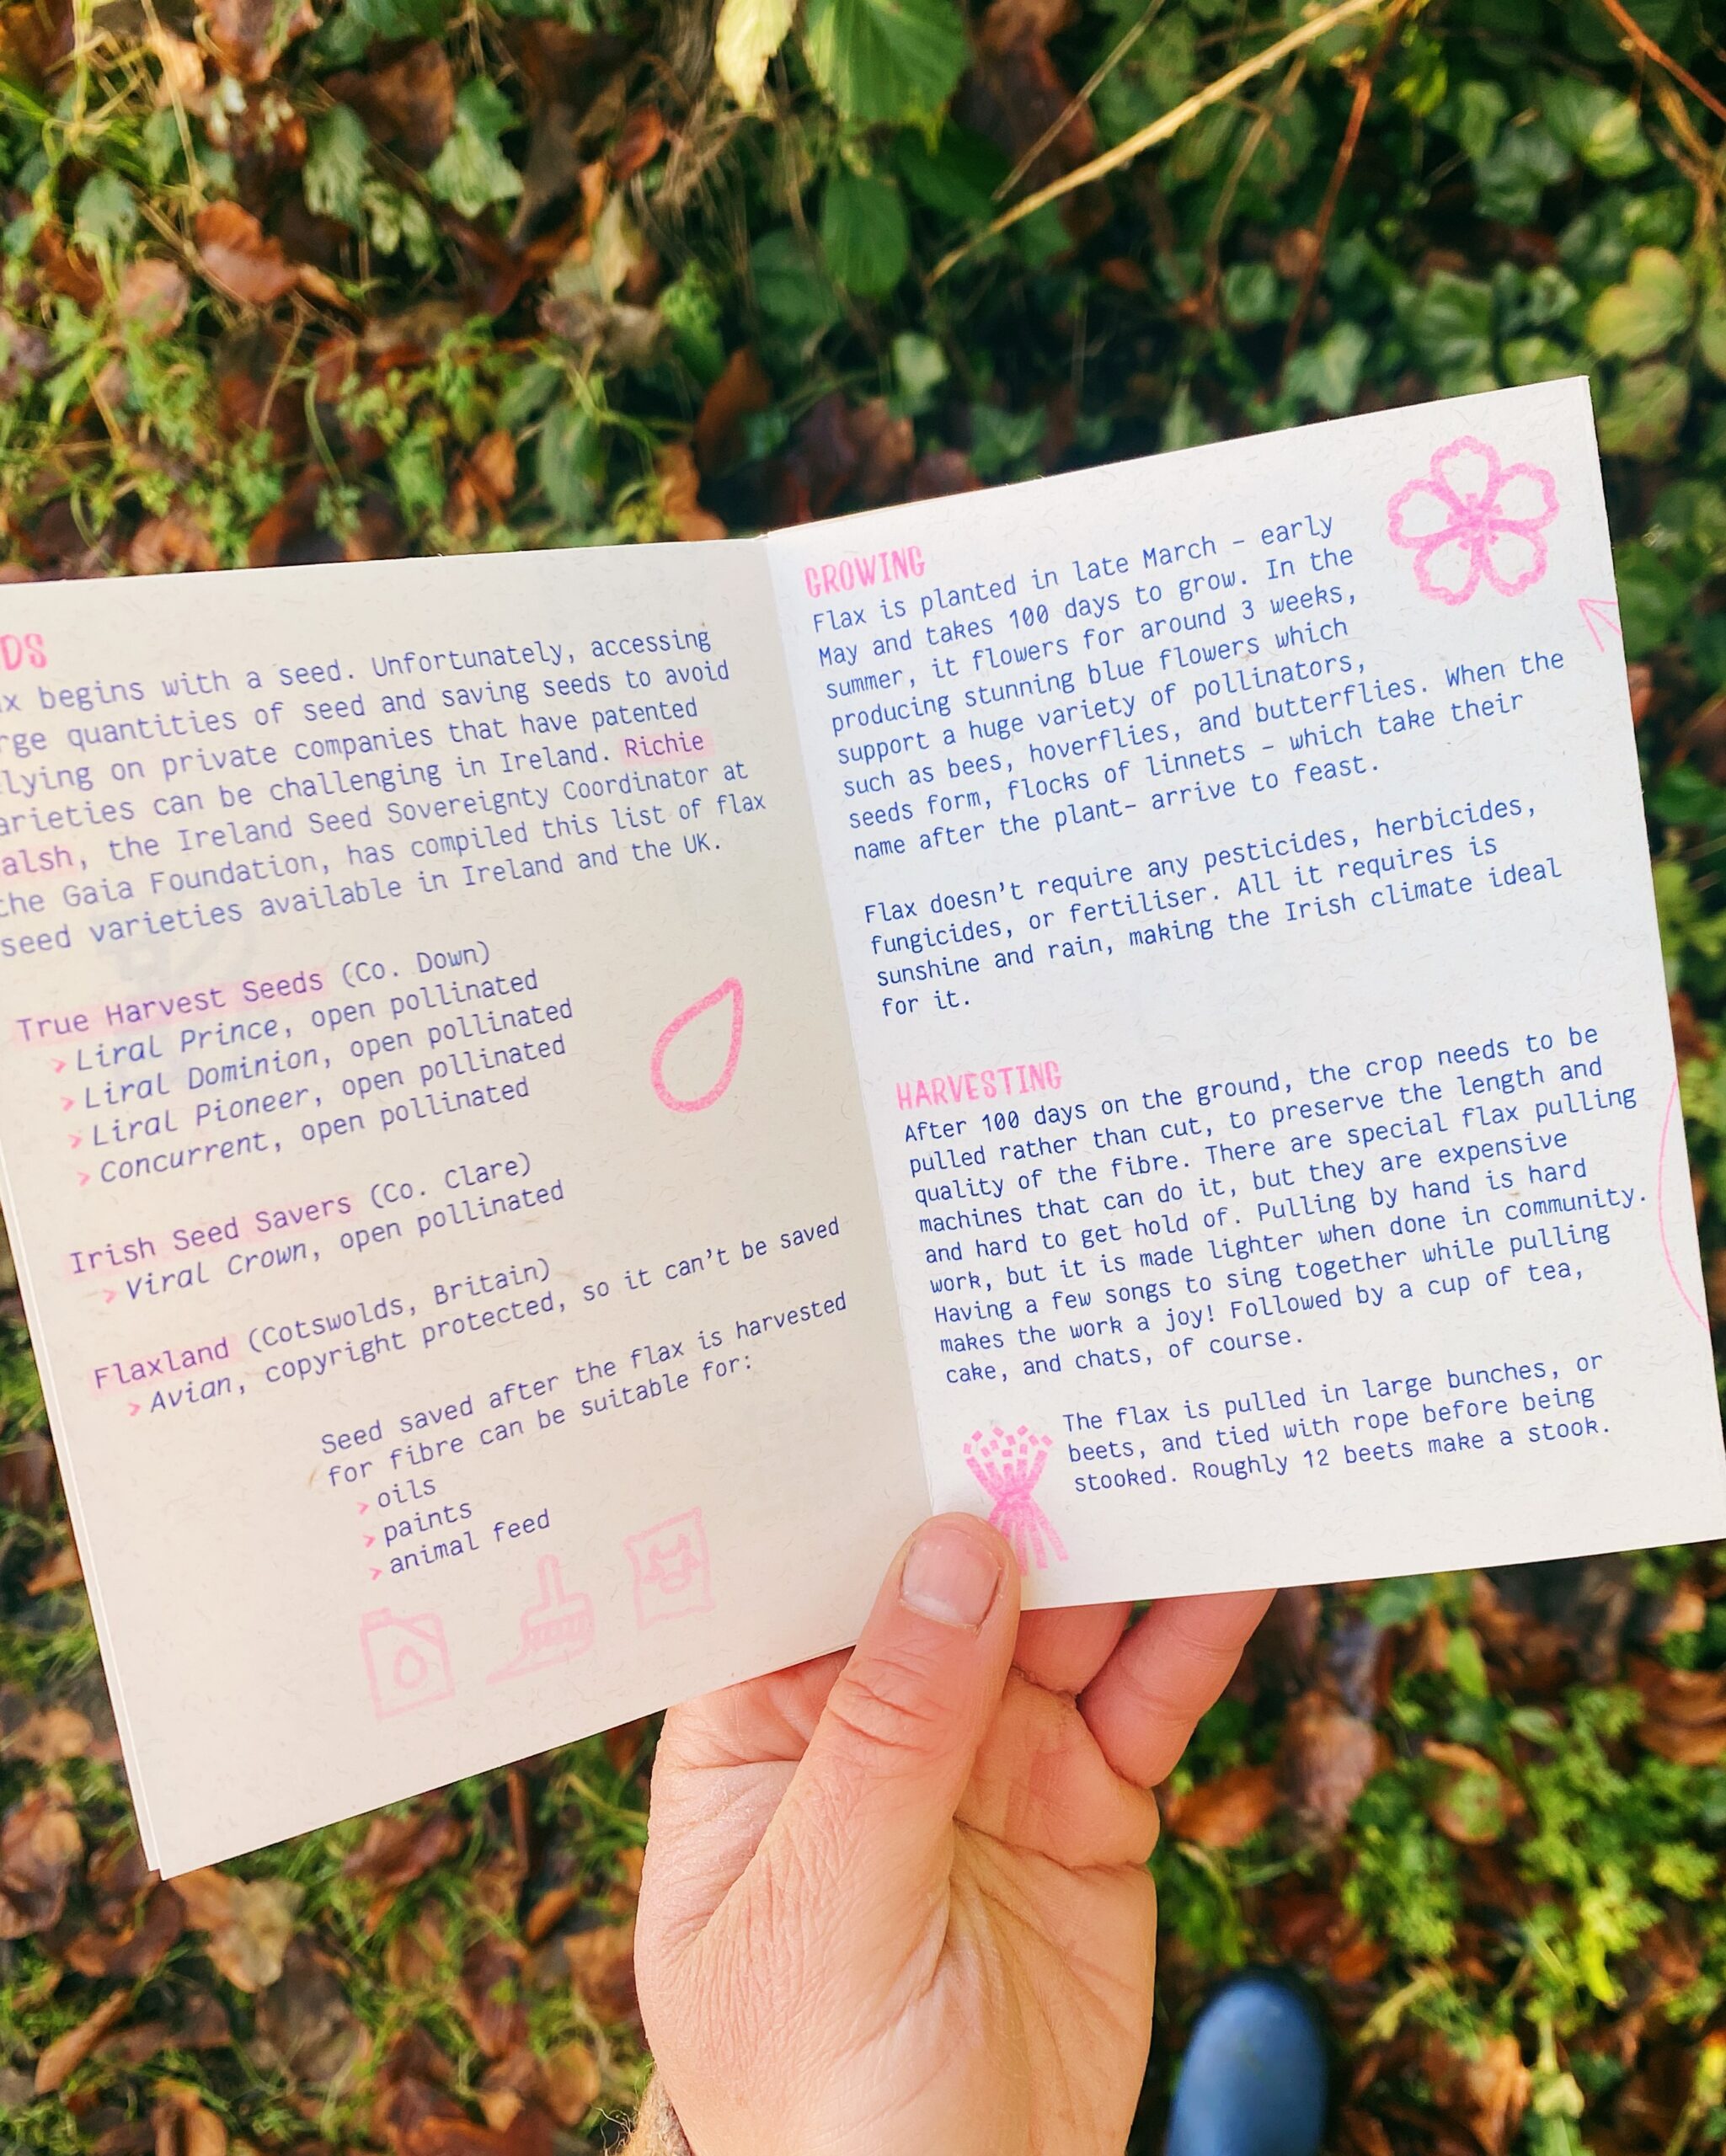 DS
x begins with a seed. Unfortunately, accessing
rge quantities of seed and saving seeds to avoid
lying on private companies that have patented
arieties can be challenging in Ireland. Richie
alsh, the Ireland Seed Sovereignty Coordinator at
the Gaia Foundation, has compiled this list of flax
seed varieties available in Ireland and the UK.
True Harvest Seeds (Co. Down)
> Liral Prince, open pollinated
> Liral Dominion, open pollinated
> Liral Pioneer, open pollinated
> Concurrent, open pollinated
Irish Seed Savers (Co. Clare)
> Viral Crown, open pollinated
Flaxland (Cotswolds, Britain)
> Avian, copyright protected, so it can't be saved
Seed saved after the flax is harvested
for fibre can be suitable for:
> oils
> paints
> animal feed
GROWING
Flax is planted in late March – early
May and takes 100 days to grow. In the
summer, it flowers for around 3 weeks,
producing stunning blue flowers which
support a huge variety of pollinators,
such as bees, hoverflies, and butterflies. When the
seeds form, flocks of linnets – which take their
name after the plant– arrive to feast.
Flax doesn't require any pesticides, herbicides,
fungicides, or fertiliser. All it requires is
sunshine and rain, making the Irish climate ideal
for it.
HARVESTING
After 100 days on the ground, the crop needs to be
pulled rather than cut, to preserve the length and
quality of the fibre. There are special flax pulling
machines that can do it, but they are expensive
and hard to get hold of. Pulling by hand is hard
work, but it is made lighter when done in community.
Having a few songs to sing together while pulling
makes the work a joy! Followed by a cup of tea,
cake, and chats, of course.
The flax is pulled in large bunches, or
beets, and tied with rope before being
stooked. Roughly 12 beets make a stook.